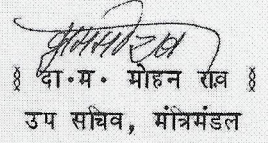 दा॰म॰ मोहन राव
उप सचिव, मंत्रिमंडल